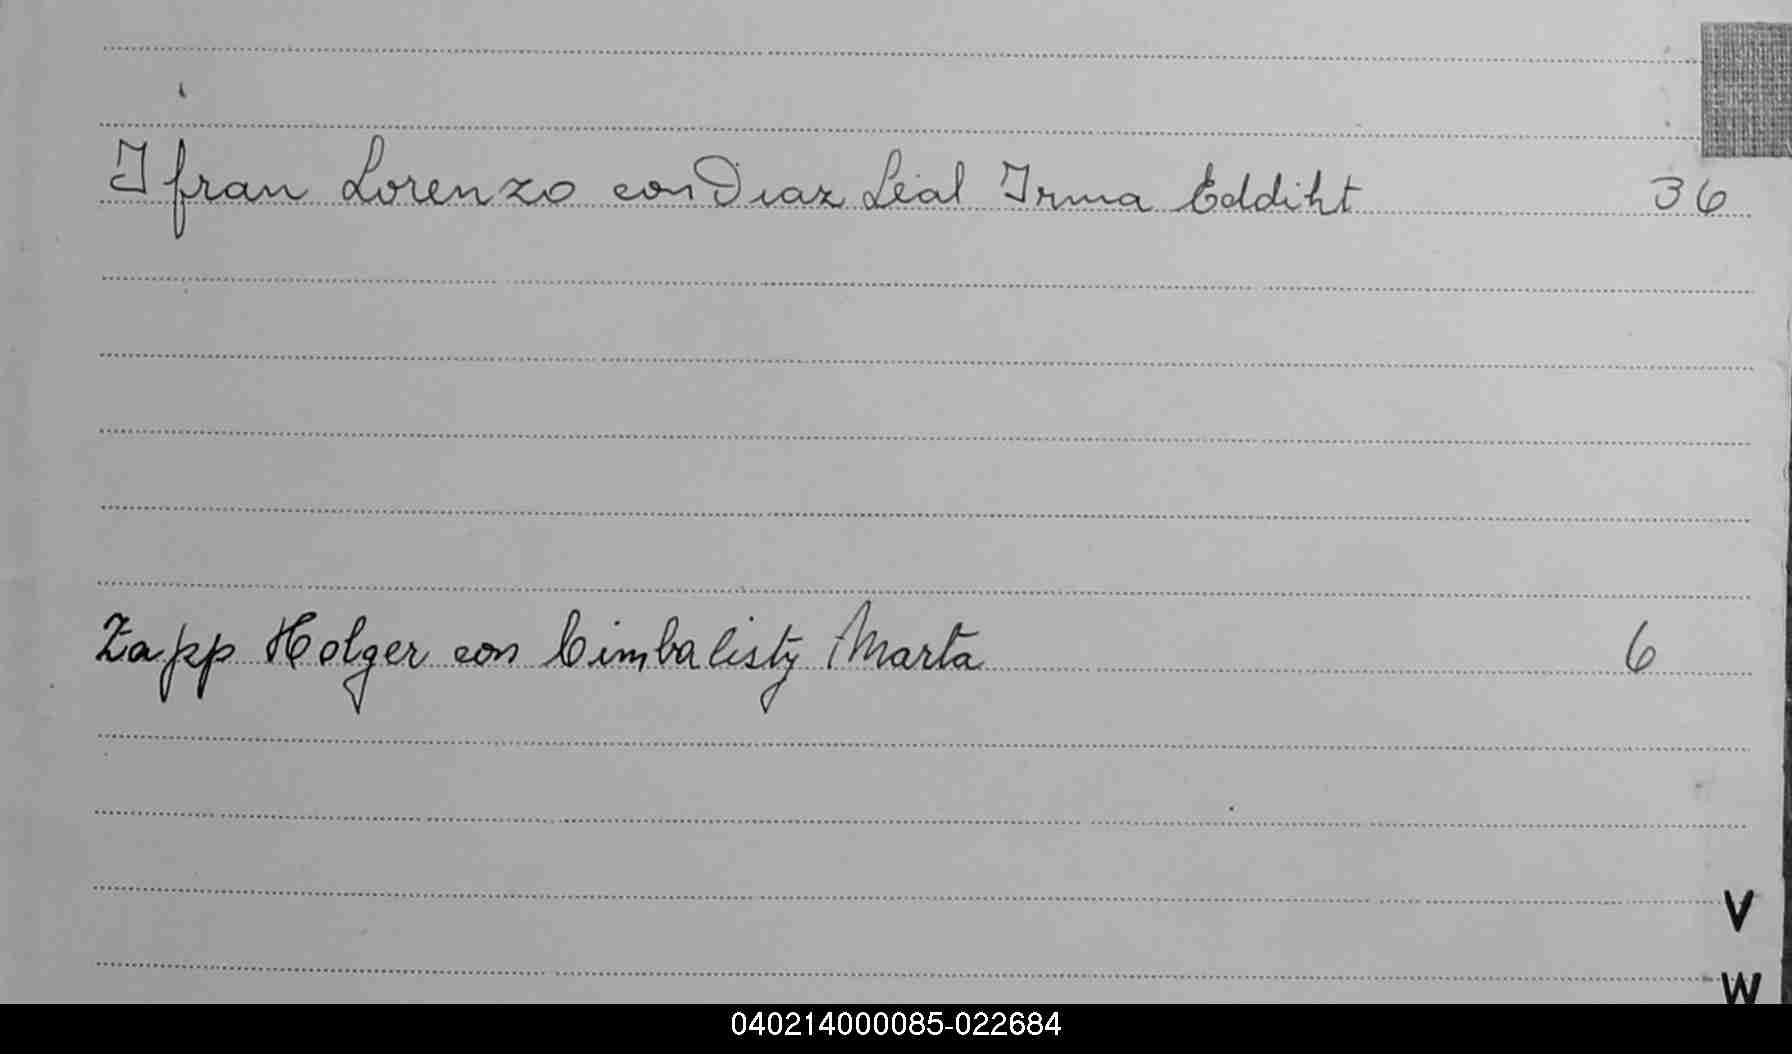 Ifran Lorenzo con Diaz Leal Irma Eddiht 36
Zapp Holger con Cimbalisty Marta 6
V
W
040214000085-022684